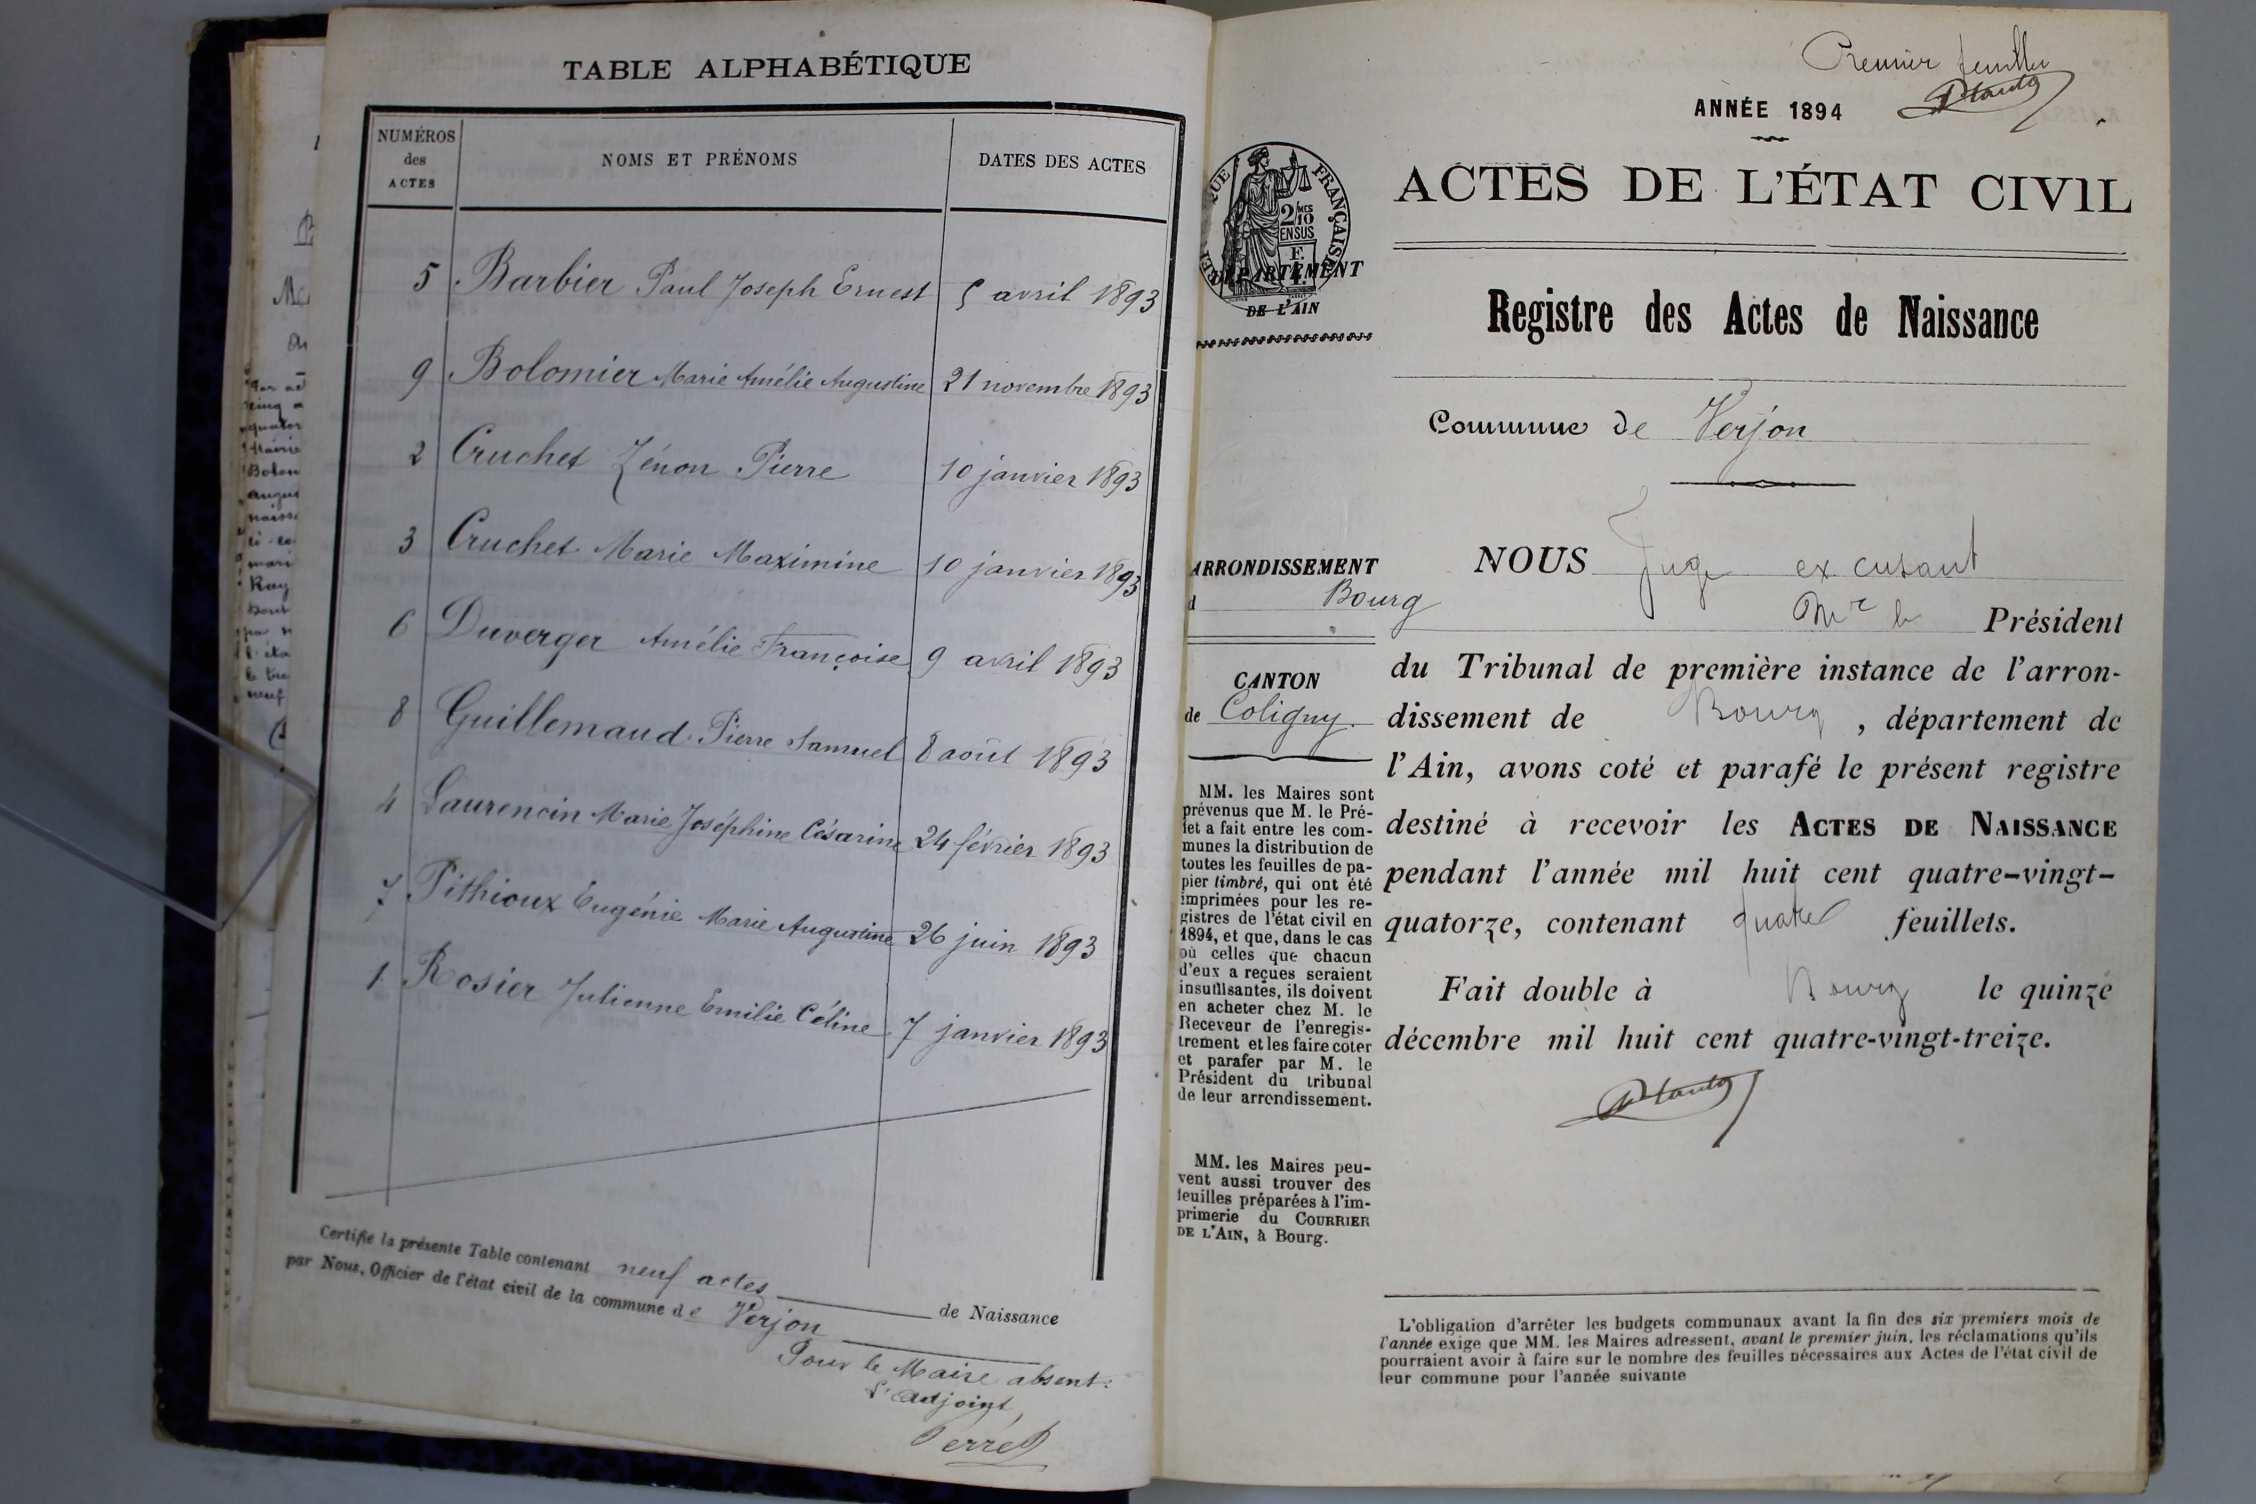 TABLE ALPHABÉTIQUE
NUMÉROS des ACTES NOMS ET PRÉNOMS DATES DES ACTES
5 Barbier Paul Joseph Ernest 5 avril 1893
9 Bolomier Marie Amélie Augustine 21 novembre 1893
2 Cruchet Zénon Pierre 10 janvier 1893
3 Cruchet Marie Maximine 10 janvier 1893
6 Duverger Amélie Françoise 9 avril 1893
8 Guillemaud Pierre Samuel 8 août 1893
4 Laurencin Marie Joséphine Césarine 24 février 1893
7 Pithioux Eugénie Marie Augustine 26 juin 1893
1 Rosier Julienne Emilie Céline 7 janvier 1893
Certifie la présente Table contenant neuf actes de Naissance
par Nous, Officier de l'état civil de la commune de Verjon
Pour le Maire absent:
L'adjoint,
Perret
Premier feuillet
ANNÉE 1894
ACTES DE L'ÉTAT CIVIL
FRANÇAISE
2/10
MES
EN SUS
DÉPARTEMENT
DE L'AIN
Registre des Actes de Naissance
Commune de Verjon
ARRONDISSEMENT
d Bourg
CANTON
de Coligny.
MM. les Maires sont
prévenus que M. le Pré-
fet a fait entre les com-
munes la distribution de
toutes les feuilles de pa-
pier timbré, qui ont été
imprimées pour les re-
gistres de l'état civil en
1894, et que, dans le cas
où celles que chacun
d'eux a reçues seraient
insuffisantes, ils doivent
en acheter chez M. le
Receveur de l'enregis-
trement et les faire coter
et parafer par M. le
Président du tribunal
de leur arrondissement.
MM. les Maires peu-
vent aussi trouver des
feuilles préparées à l'im-
primerie du COURRIER
DE L'AIN, à Bourg.
NOUS Juge excusant
Mr le Président
du Tribunal de première instance de l'arron-
dissement de Bourg, département de
l'Ain, avons coté et parafé le présent registre
destiné à recevoir les ACTES DE NAISSANCE
pendant l'année mil huit cent quatre-vingt-
quatorze, contenant quatre feuillets.
Fait double à Bourg le quinze
décembre mil huit cent quatre-vingt-treize.
L'obligation d'arrêter les budgets communaux avant la fin des six premiers mois de
l'année exige que MM. les Maires adressent, avant le premier juin, les réclamations qu'ils
pourraient avoir à faire sur le nombre des feuilles nécessaires aux Actes de l'état civil de
leur commune pour l'année suivante